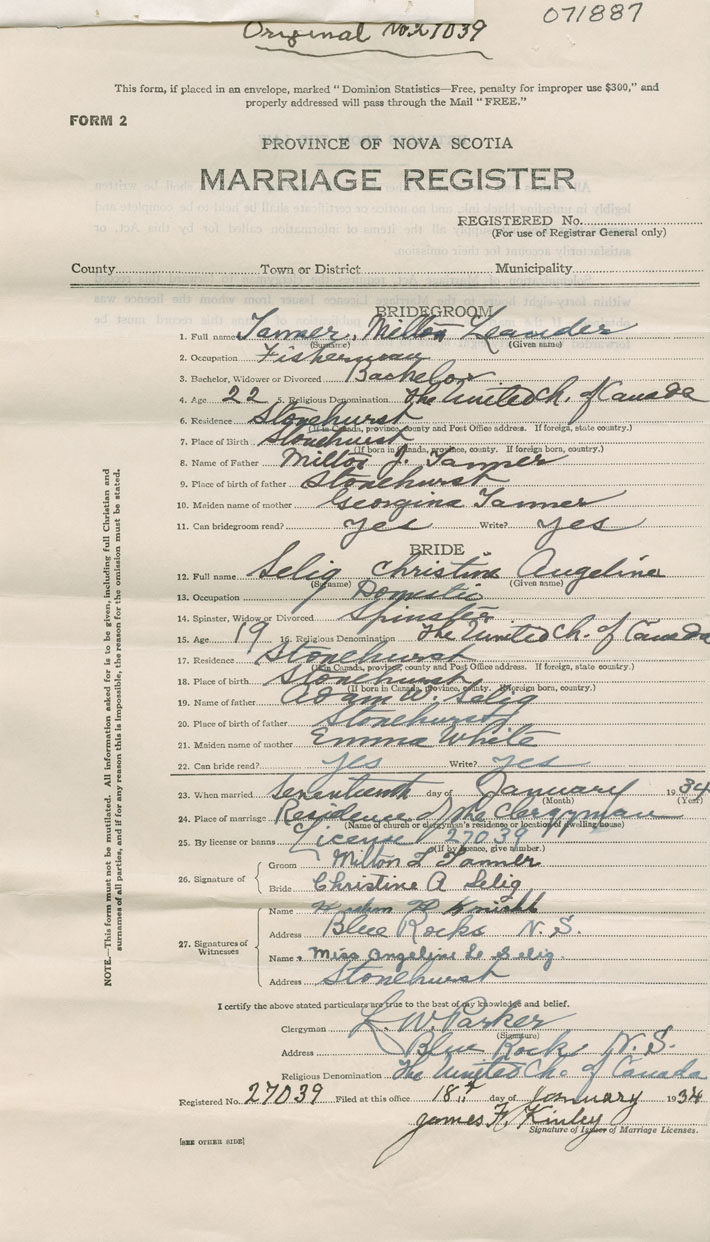 071887
Original No. 27039
This form, if placed in an envelope, marked "Dominion Statistics—Free, penalty for improper use $300," and
properly addressed will pass through the Mail "FREE."
FORM 2
PROVINCE OF NOVA SCOTIA
MARRIAGE REGISTER
REGISTERED No.
(For use of Registrar General only)
County Town or District Municipality
BRIDEGROOM
1. Full name Tanner, Milton Leander
(Surname) (Given name)
2. Occupation Fisherman
3. Bachelor, Widower or Divorced Bachelor
4. Age 22 5. Religious Denomination The United Ch. of Canada
6. Residence Stonehurst
(If in Canada, province, county and Post Office address. If foreign, state country.)
7. Place of Birth Stonehurst
(If born in Canada, province, county. If foreign born, country.)
8. Name of Father Milton J. Tanner
9. Place of birth of father Stonehurst
10. Maiden name of mother Georgina Tanner
11. Can bridegroom read? yes Write? yes
BRIDE
12. Full name Selig Christine Angeline
(Surname) (Given name)
13. Occupation Domestic
14. Spinster, Widow or Divorced Spinster
15. Age 19 16. Religious Denomination The United Ch. of Canada
17. Residence Stonehurst
(If in Canada, province, county and Post Office address. If foreign, state country.)
18. Place of birth Stonehurst
(If born in Canada, province, county. If foreign born, country.)
19. Name of father Adam W. Selig
20. Place of birth of father Stonehurst
21. Maiden name of mother Emma White
22. Can bride read? yes Write? yes
23. When married seventeenth day of January 1934
(Month) (Year)
24. Place of marriage Residence of the Clergyman
(Name of church or clergyman's residence or location of dwelling house)
25. By license or banns License 27039
(If by licence, give number.)
26. Signature of
Groom Milton L Tanner
Bride Christine A Selig
27. Signatures of Witnesses
Name Knight
Address Blue Rocks N. S.
Name Miss Angeline Selig
Address Stonehurst
I certify the above stated particulars are true to the best of my knowledge and belief.
Clergyman L. W. Parker
(Signature)
Address Blue Rocks N. S.
Religious Denomination The United Ch. of Canada
Registered No. 27039 Filed at this office 18th day of January 1934
James F. Kinley
Signature of Issuer of Marriage Licenses.
[SEE OTHER SIDE]
NOTE.—This form must not be mutilated. All information asked for is to be given, including full Christian and
surnames of all parties, and if for any reason this is impossible, the reason for the omission must be stated.